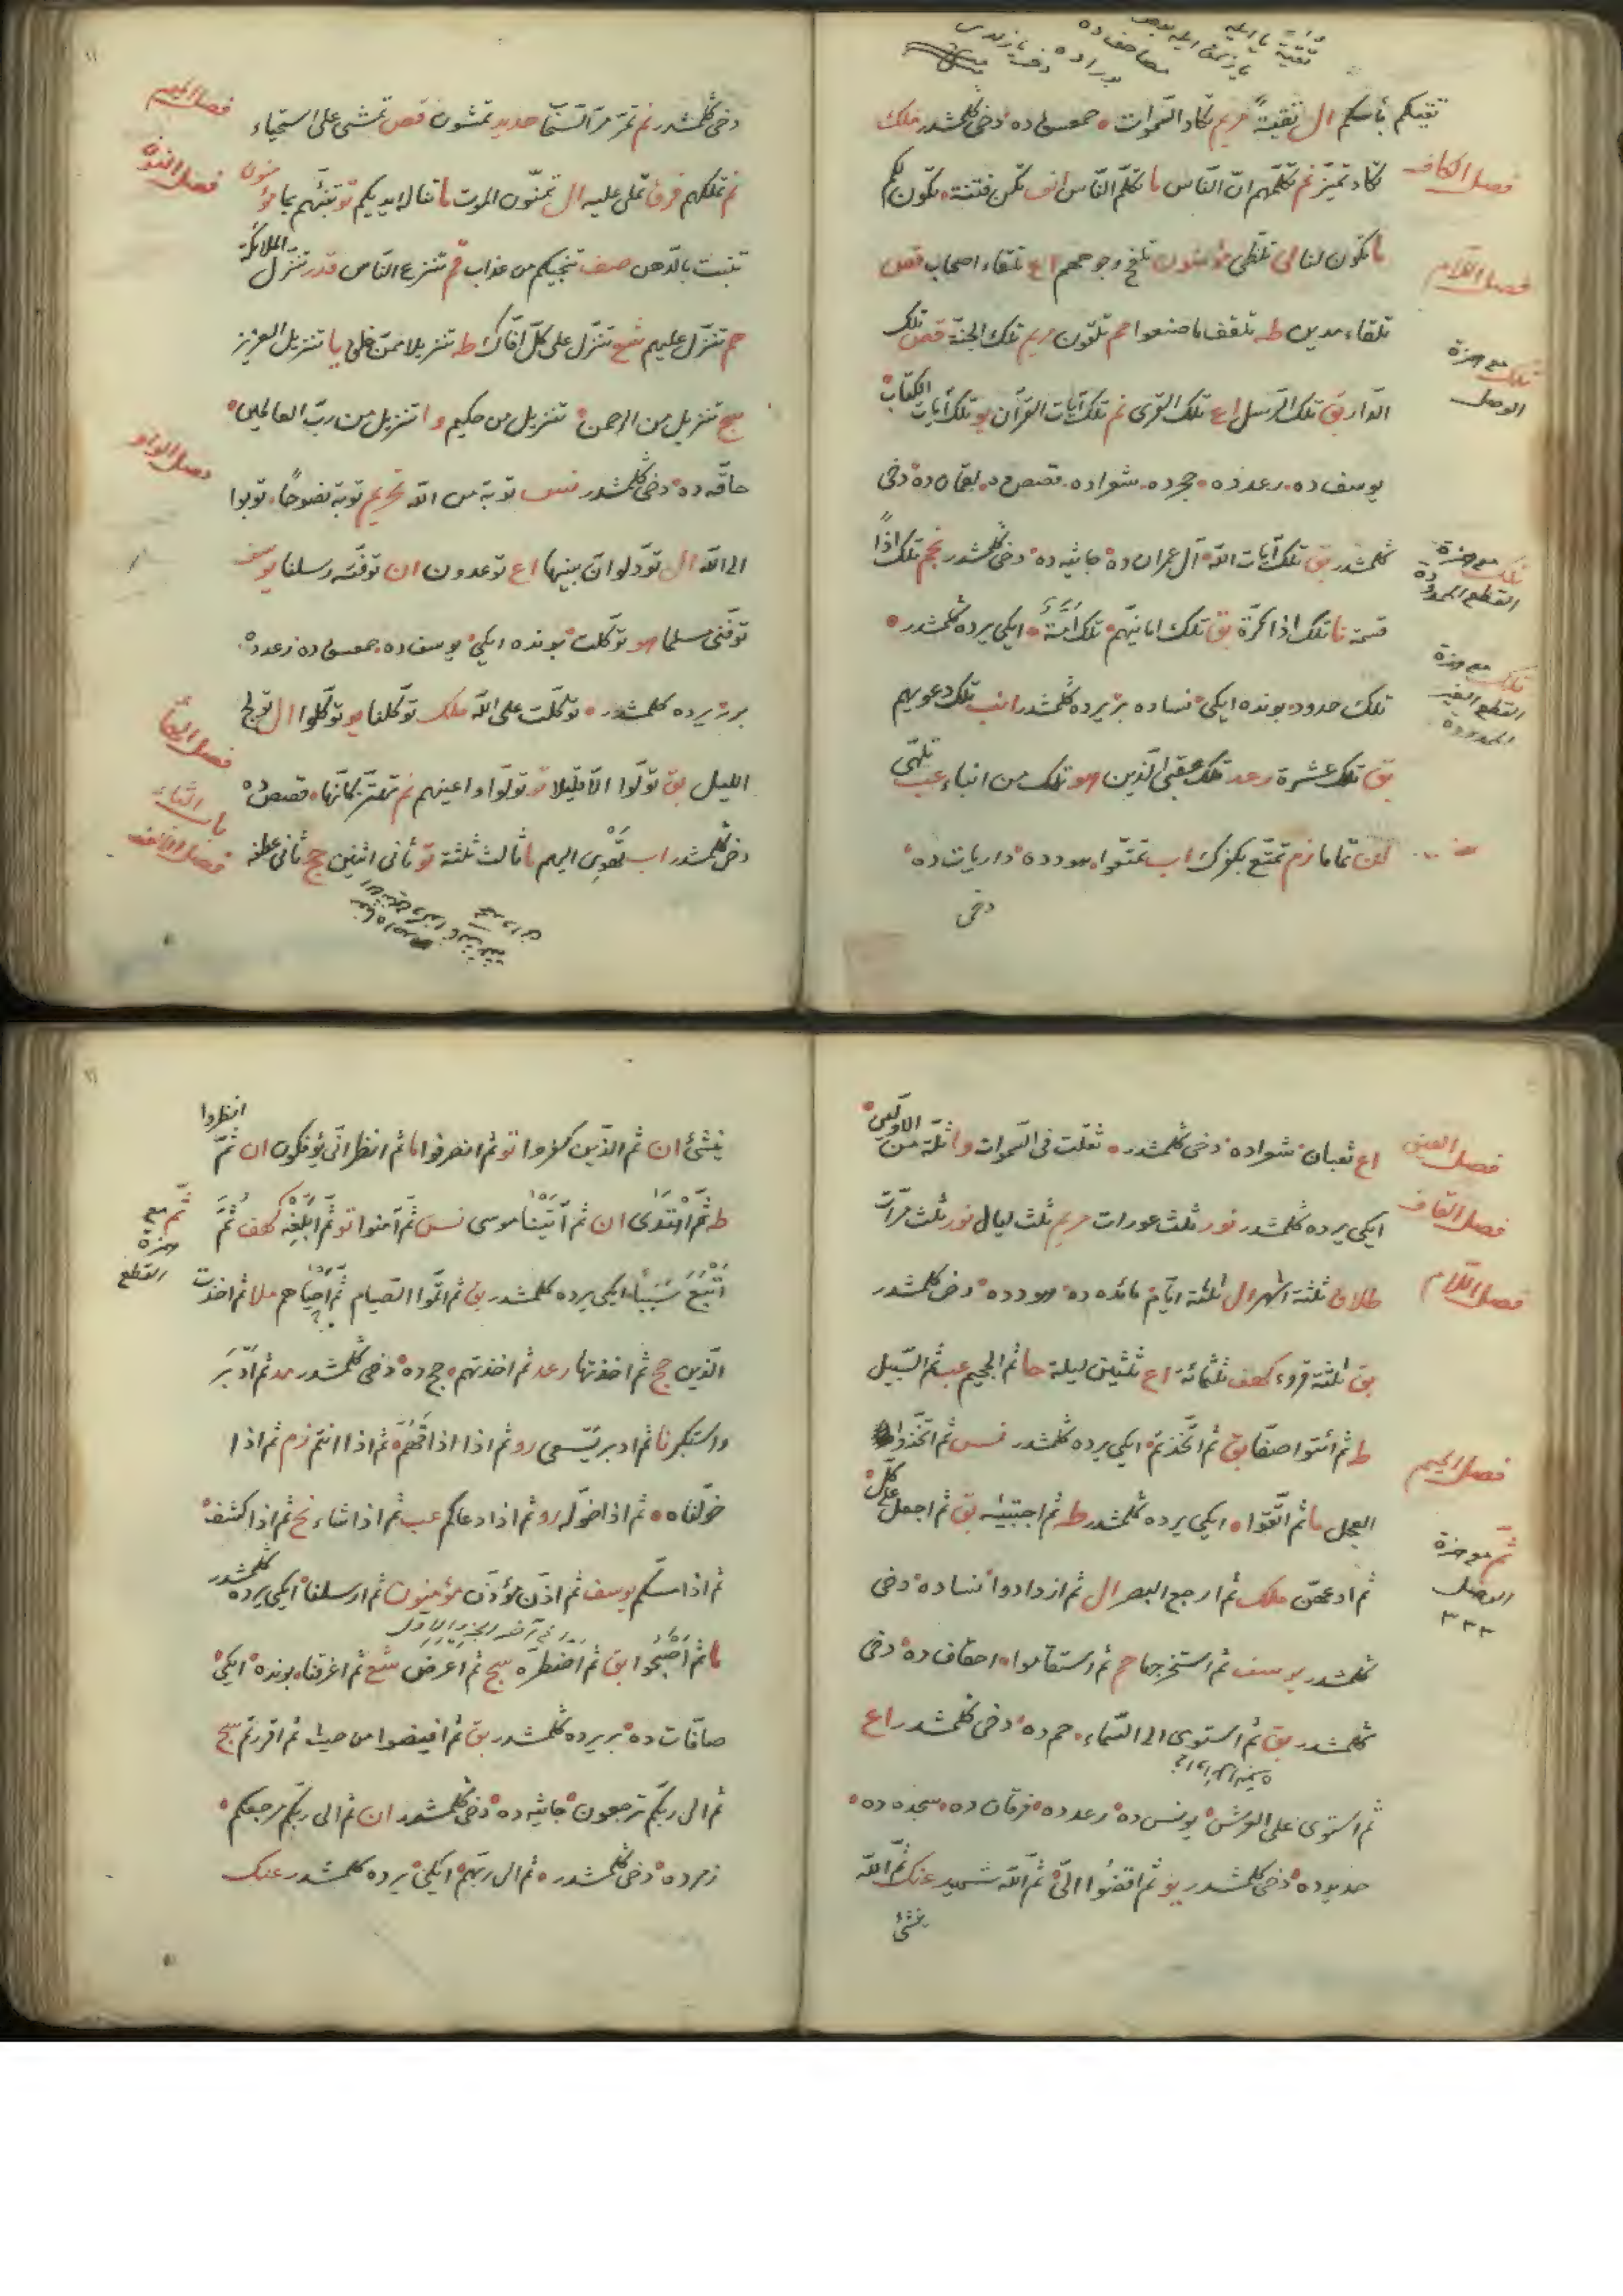 تقيكم بأسكم ال تقية مريم تكاد السموات جمعسق ده دخى كلمشدر ملك
فصل الكاف
تكاد تميز نم تكلمهم ان الناس ما تكلم الناس انف تكن فتنة تكون لكم
فصل اللام
ما تكون لنا لى تلظى مؤمنون تلفح وجوههم اع تلقاء اصحاب قص
تلقاء مدين ط تلقف ما صنعوا مم تلقون مريم تلك الجنة قص تلك
تلك مع همزة الوصل
الدار بق تلك الرسل اع تلك القرى نم تلك آيات القرآن يو تلك آيات الكتاب
يوسف ده رعد ده حجر ده شعرا ده قصص ده لقمان ده دخى
تلك مع همزة القطع الممدودة
كلمشدر بق تلك آيات الله آل عمران ده جاثيه ده دخى كلمشدر نجم تلك اذا
قسمة نا تلك اذا كرة بق تلك امانيهم تلك امة ايكى يرده كلمشدر
تلك مع همزة القطع الغير الممدودة
تلك حدود بونده ايكى نساده بر يرده كلمشدر انب تلك دعويهم
بق تلك عشرة رعد تلك عقبى الذين هو تلك من انباء عب تلهى
تماما زم تمتع بكفرك اب تمتعوا هودده ذارياتده
دخى
دخى كلمشدر نم تمر مر السحاب حديد تمشون قص تمشى على استحياء
فصل الميم
نم تملكهم فرق تملى عليه ال تمنون الموت ما تناله ايديكم تو تنبئهم بما مؤمنون
فصل النون
تنبت بالدهن صف تنجيكم من عذاب قم تنزع الناس قدر تنزل الملائكة
حم تنزل عليهم شع تنزل على كل افاك ط تنزيلا ممن خلق يا تنزيل العزيز
سج تنزيل من الرحمن تنزيل من حكيم وا تنزيل من رب العالمين
فصل الواو
حاقه ده دخى كلمشدر نس توبة من الله تحريم توبة نصوحا توبوا
الى الله ال تود لو ان بينها اع توعدون ان توفته رسلنا يوسف
توفنى مسلما هو توكلت بونده ايكى يوسف ده جمعسق ده رعدده
برر يرده كلمشدر توكلت على الله ملك توكلنا يو توكلوا ال تولج
الليل بق تولوا الا قليلا تو تولوا واعينهم نم تهتز كانها قصص ده
فصل الهاء
دخى كلمشدر اب تهوى اليهم ما ثالث ثلثة تو ثانى اثنين حج ثانى عطفه
باب الثاء
فصل الالف
فصل العين
اع ثعبان شعراده دخى كلمشدر ثقلت فى السموات وا ثلة من الاولين
فصل القاف
ايكى يرده كلمشدر نور ثلث عورات مريم ثلث ليال نور ثلث مرات
فصل اللام
طلاق ثلثة اشهر ال ثلثة ايام مائده ده هودده دخى كلمشدر
بق ثلثة قروء كهف ثلثمائة اع ثلثين ليلة حا ثم الجحيم عب ثم السبيل
ط ثم ائتوا صفا بق ثم اتخذتم ايكى يرده كلمشدر نس ثم اتخذوا
فصل الميم
العجل ما ثم اتقوا ايكى يرده كلمشدر ط ثم اجتبيه بق ثم اجعل على كل
ثم مع همزة الوصل ٣٣٣
ثم ادعهن ملك ثم ارجع البصر ال ثم ازدادوا نساده دخى
كلمشدر يوسف ثم استخرجها حم ثم استقاموا احقاف ده دخى
كلمشدر بق ثم استوى الى السماء حم ده دخى كلمشدر اع
ثم استوى على العرش يونس ده رعدده فرقان ده سجده ده
حديدده دخى كلمشدر يو ثم اقضوا الى ثم الله شهيد عنك ثم الله
ينشئ
ينشئ ان ثم الذين كفروا تو ثم انصرفوا ما ثم انظر انى يؤفكون ان ثم انظروا
ط ثم اهتدى ان ثم آتينا موسى نس ثم آمنوا تو ثم ابلغه كهف ثم
ثم مع همزة القطع
اتبع سببا ايكى يرده كلمشدر بق ثم اتموا الصيام ثم احياهم ملا ثم اخذت
الذين حج ثم اخذتها رعد ثم اخذتهم حج ده دخى كلمشدر مد ثم ادبر
واستكبر نا ثم ادبر يسعى رو ثم اذا اذاقهم ثم اذا انتم زم ثم اذا
خولناه ثم اذا خوله رو ثم اذا دعاكم عب ثم اذا شاء نح ثم اذا كشف
ثم اذا مسكم يوسف ثم اذن مؤذن مؤمنون ثم ارسلنا ايكى يرده كلمشدر
ما ثم اصبحوا بق ثم اضطره سج ثم اعرض شع ثم اغرقنا بونده ايكى
صافات ده بر يرده كلمشدر بق ثم افيضوا من حيث ثم اقررتم سج
ثم الى ربكم ترجعون جاثيه ده دخى كلمشدر ان ثم الى ربكم مرجعكم
زمرده دخى كلمشدر ثم الى ربهم ايكى يرده كلمشدر عنك